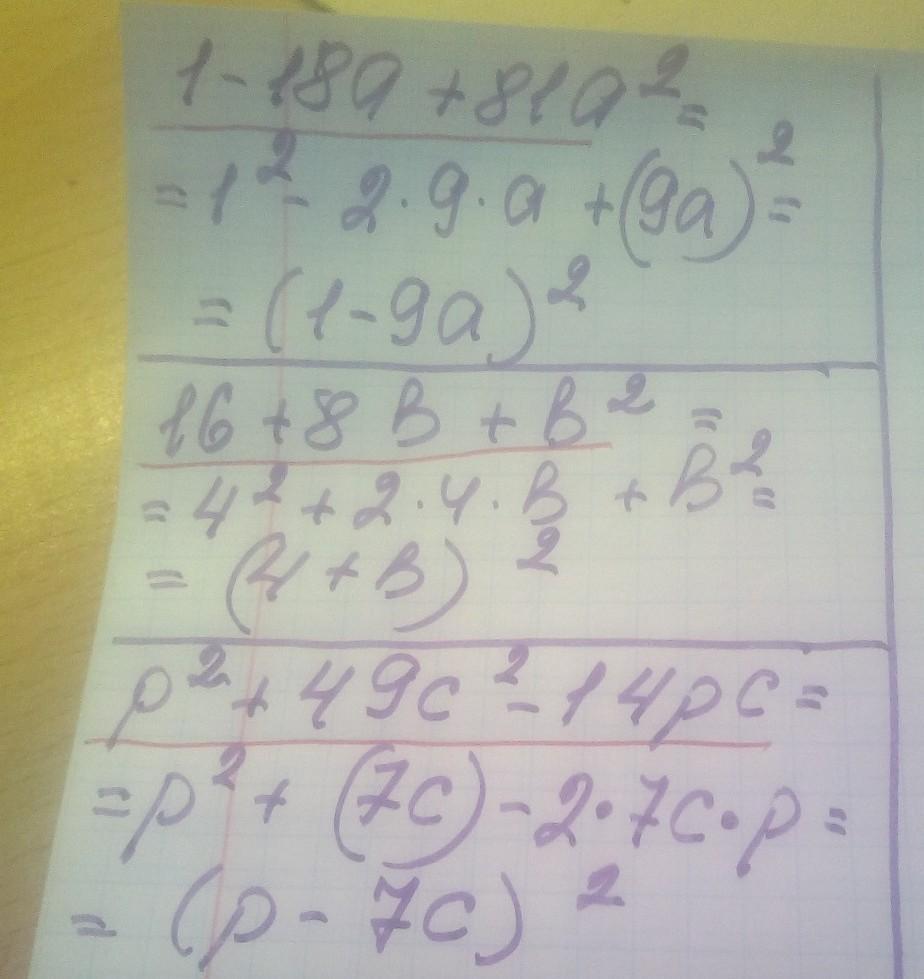 1-18a+81a²=
=1²-2·9·a+(9a)²=
=(1-9a)²
16+8в+в²=
=4²+2·4·в+в²=
=(4+в)²
p²+49c²-14pc=
=p²+(7c)-2·7c·p=
=(p-7c)²